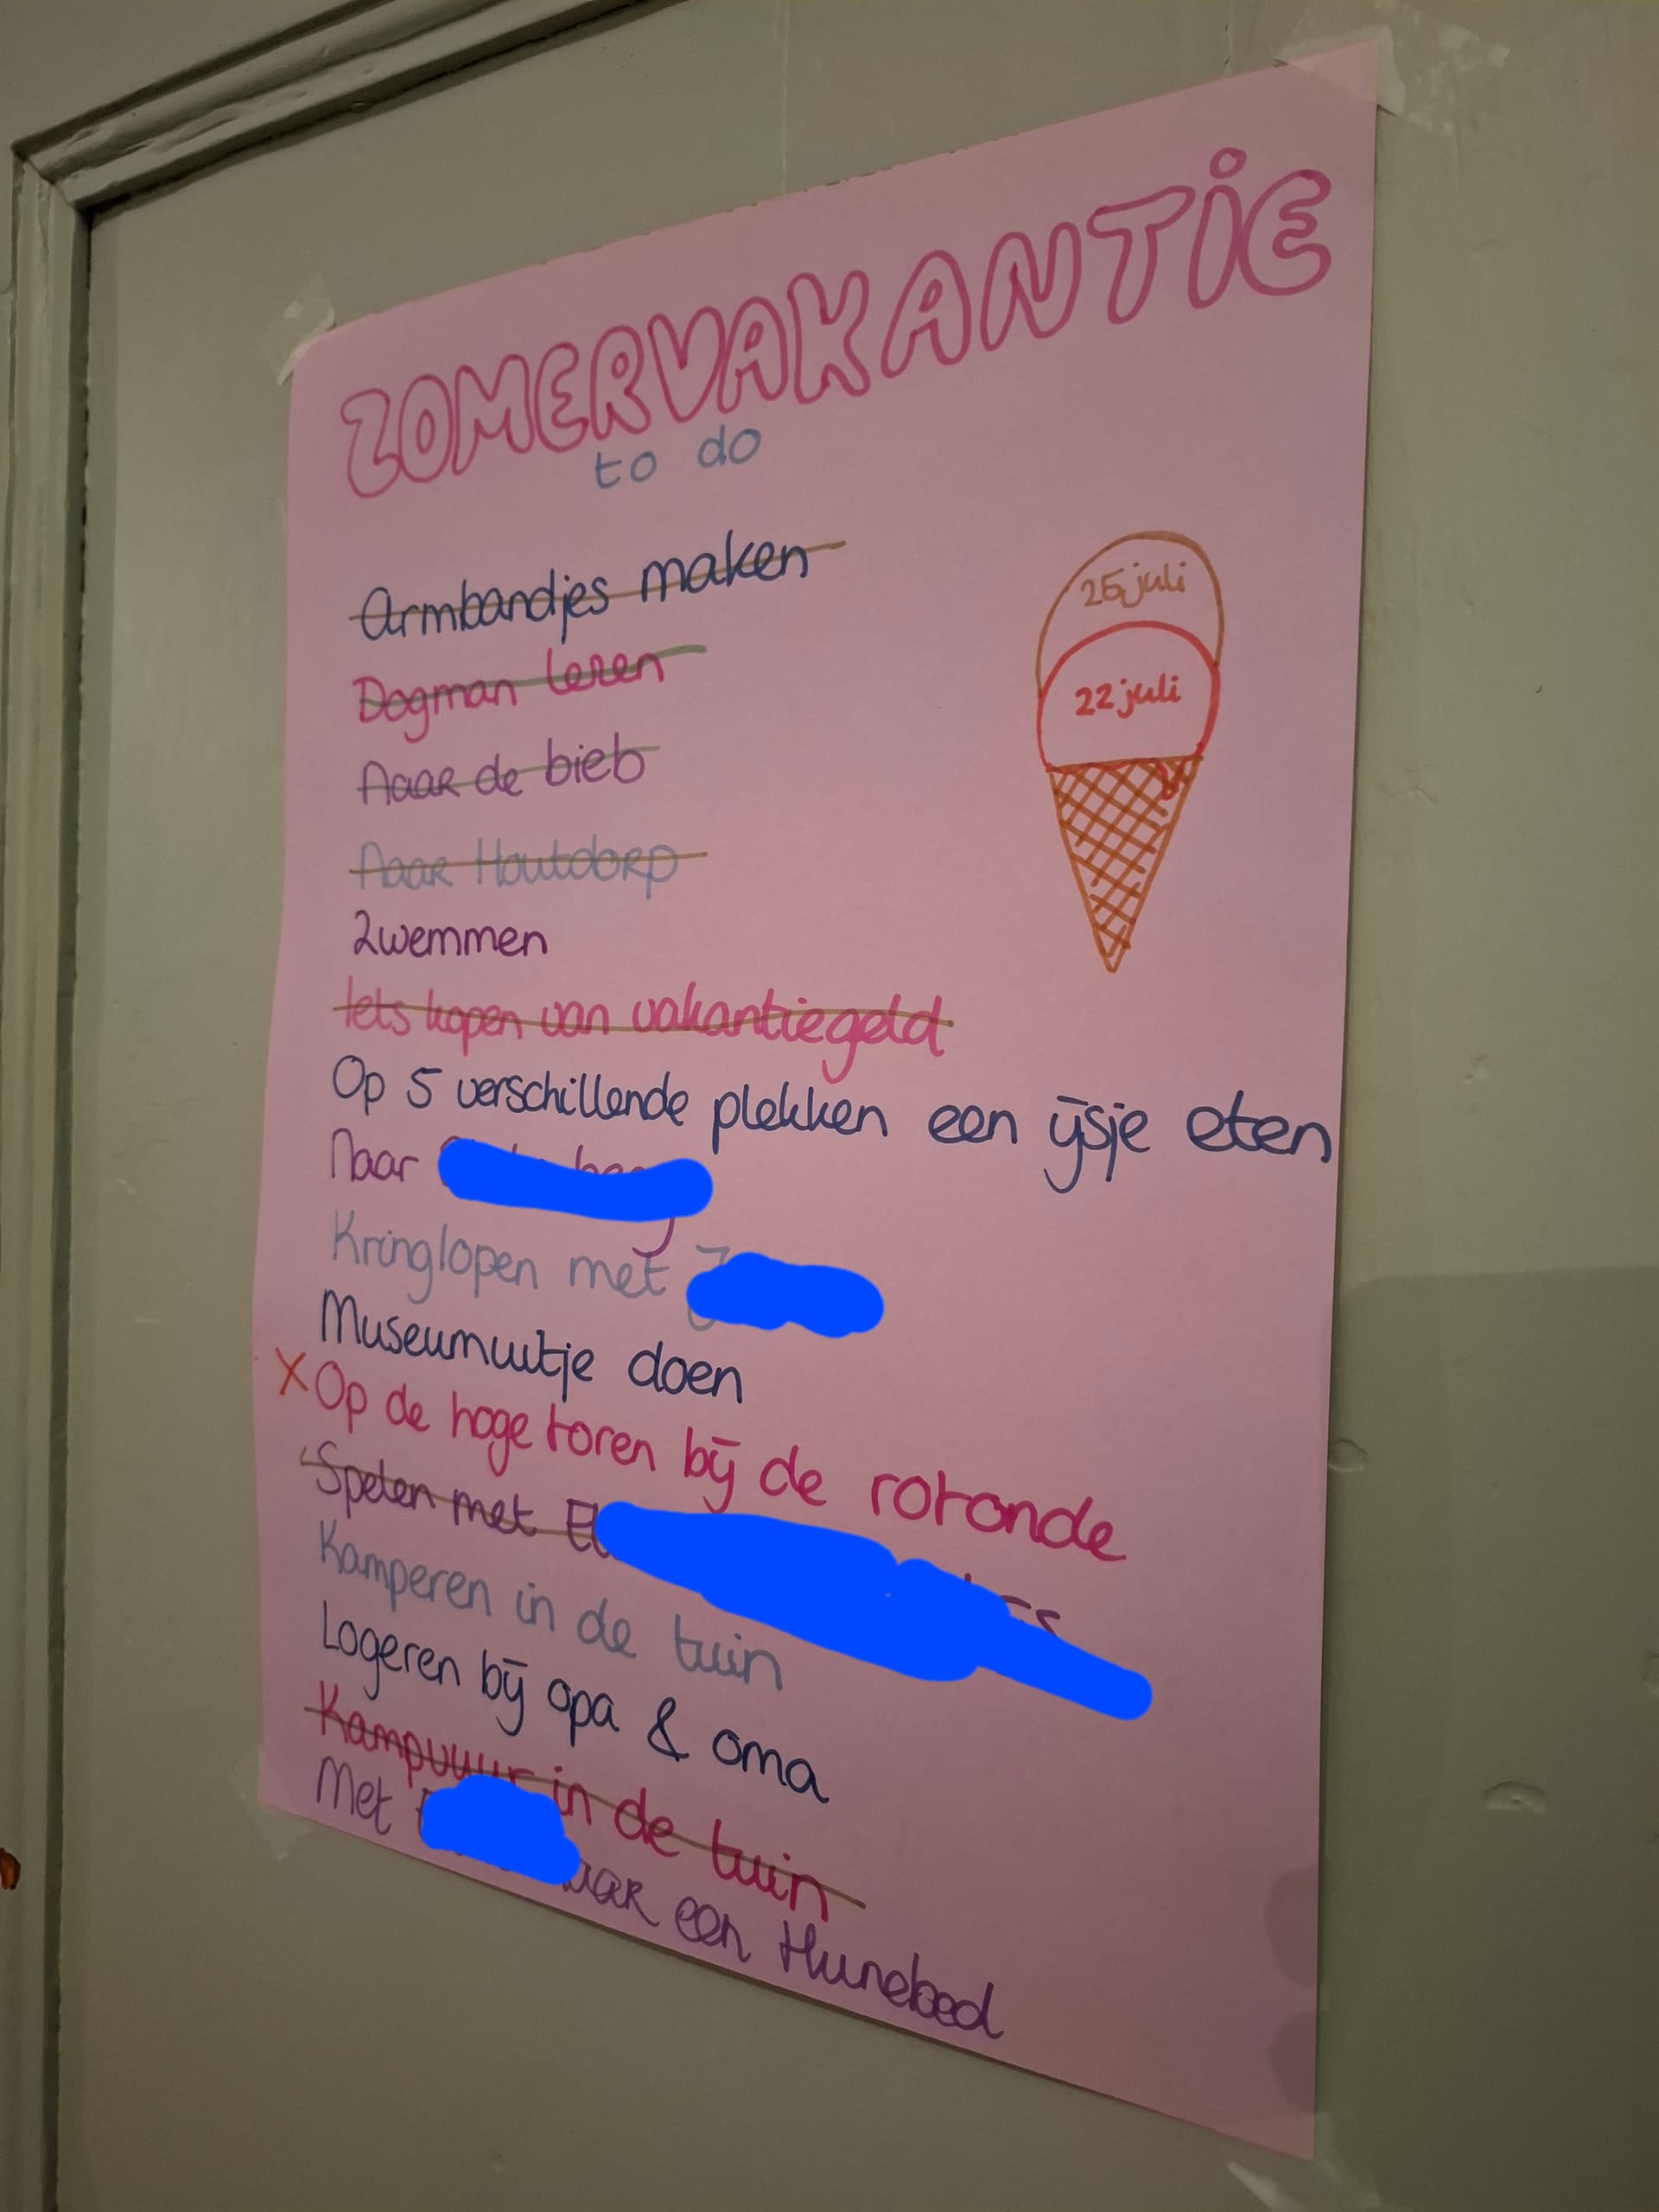 ZOMERVAKANTIE
to do
Armbandjes maken
Dogman lezen
Naar de bieb
Naar Houtdorp
Zwemmen
Iets kopen van vakantiegeld
Op 5 verschillende plekken een ijsje eten
Naar
Kringlopen met
Museumuitje doen
X Op de hoge toren bij de rotonde
Spelen met
Kamperen in de tuin
Logeren bij opa & oma
Kampvuur in de tuin
Met naar een Hunebed
25 juli
22 juli